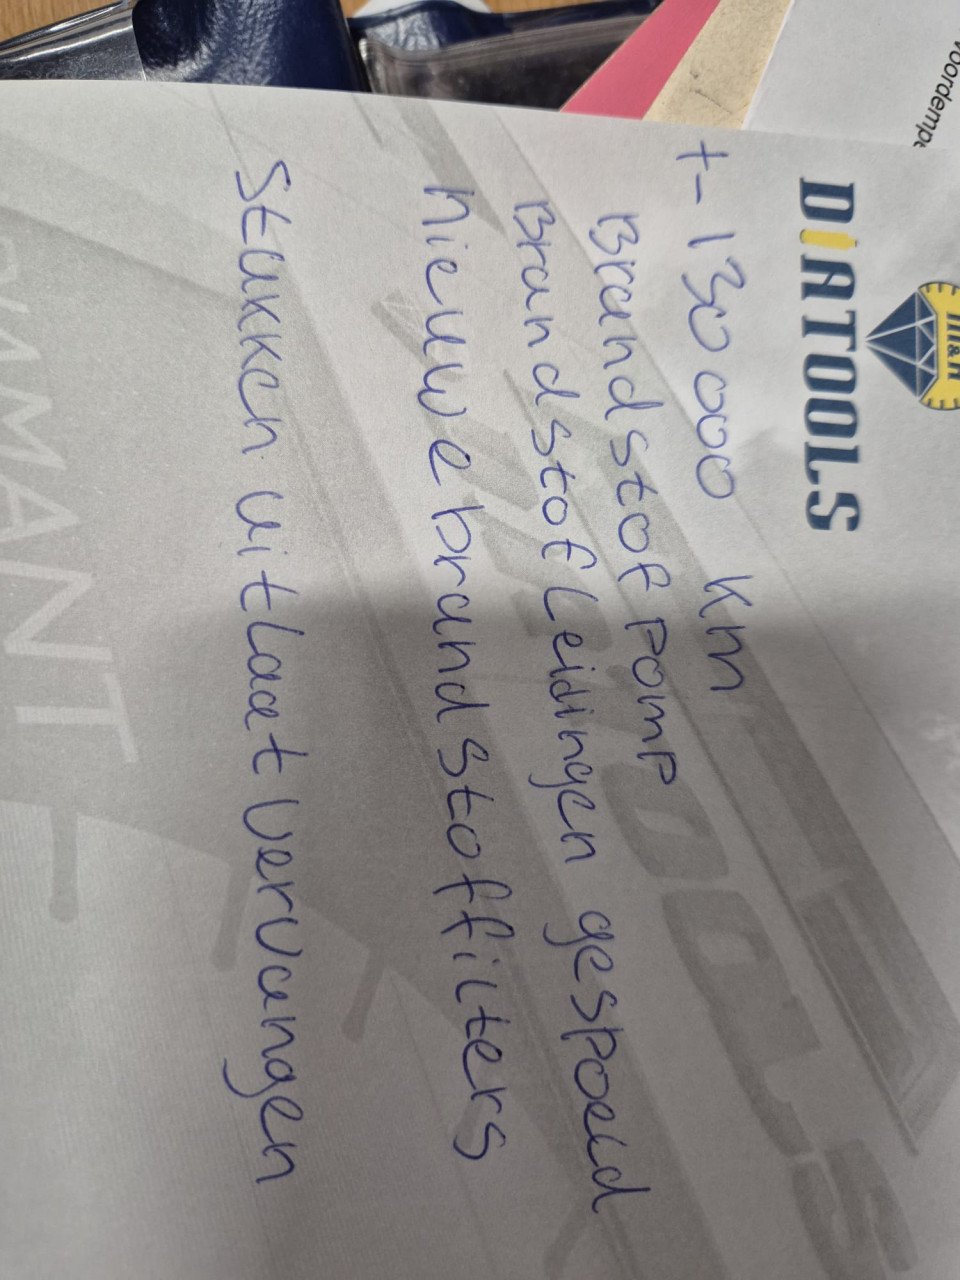 voordempe
M&R
DIATOOLS
+- 130000 Km
Brandstof Pomp
Brandstof Leidingen gespoeld
nieuwe brandstof filters
Stukken uitlaat vervangen
DIATOOLS
DIAMANT